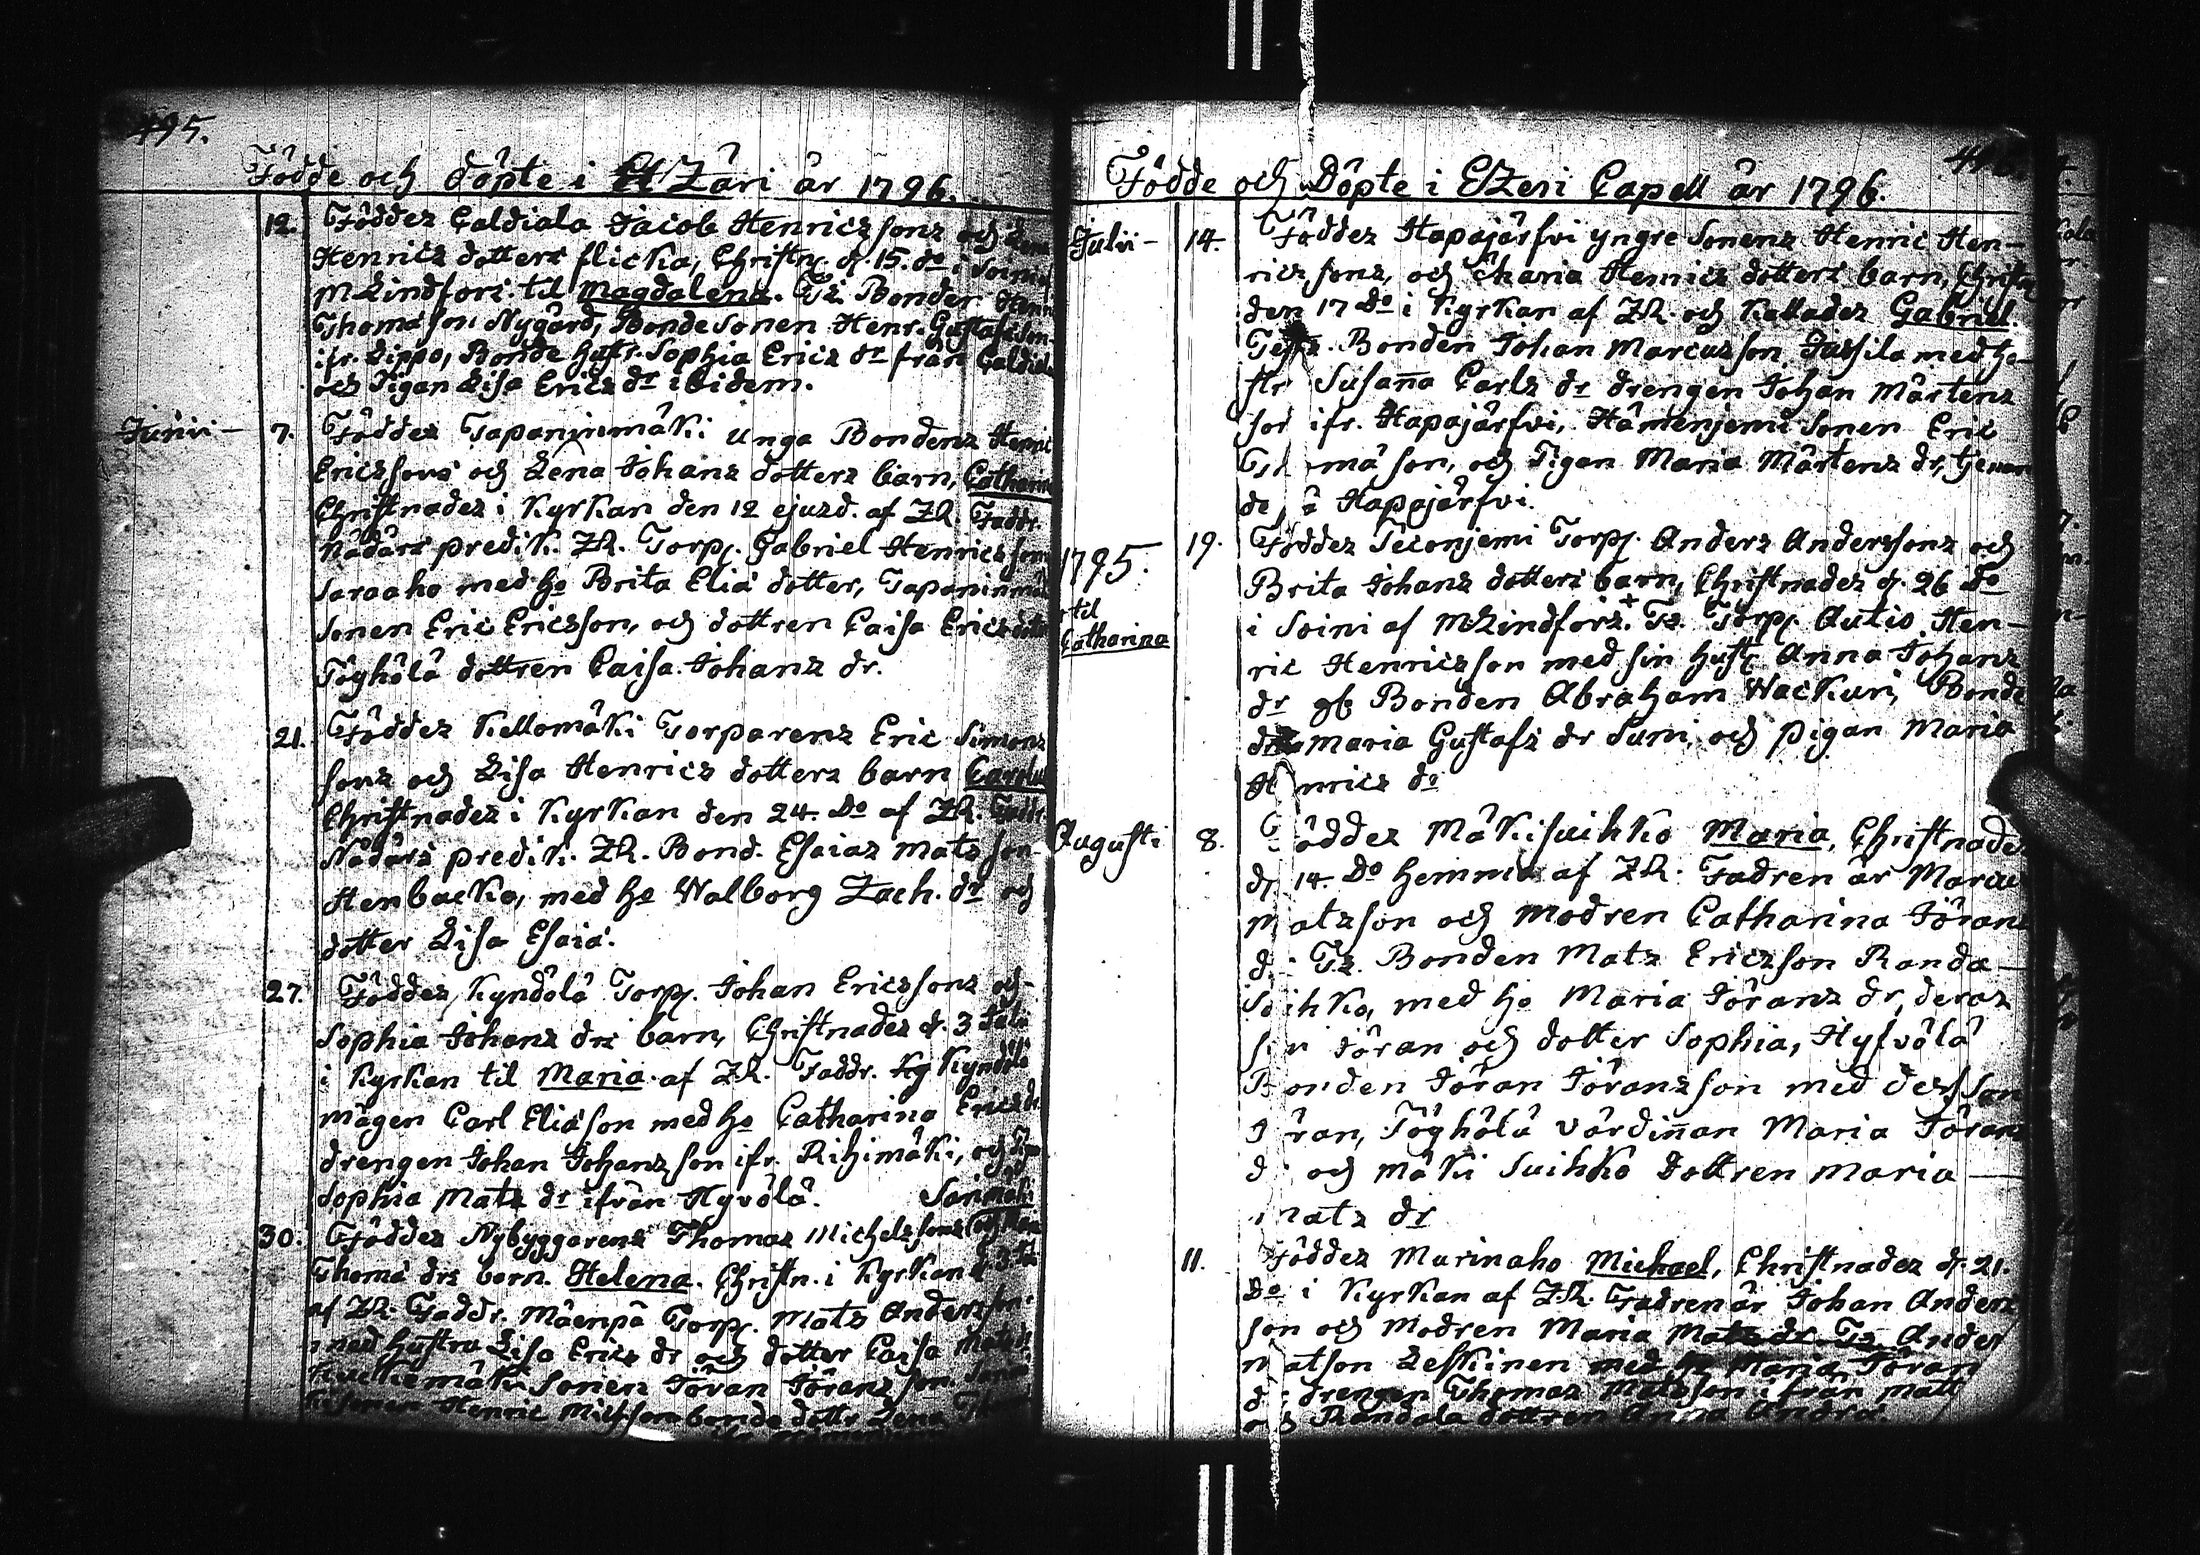 495.
Födde och döpte i EtZäri år 1796.
12. Föddes Caldiala Jacob Henricssons och Lena
Henrics dotters flicka, Christn. d. 15. do i Soini af
M Lindfors til Magdalena. Ts. Bonden Henric
Thomason Nygård, Bonde Sonen Henr. Gustafsson
ifr. Lippo, Bonde hustr. Sophia Erics dr från Caldiala
och Pigan Lisa Erics dr ibidem.
Junii - 7. Föddes Tapaninmäki unga Bondens Henric
Ericssons och Lena Johans dotters barn, Catharina
Christnades i Kyrkan den 12 ejusd. af ZR. Faddr.
Nådårs predik. ZR. Torp. Gabriel Henricsson
Saraaho med ho Brita Eliæ dotter, Tapaninmäki
Sonen Eric Ericsson, och dottren Caisa Erics dotter
Töyhölä dottren Caisa Johans dr.
21. Föddes Kellomäki Torparens Eric Simons
sons och Lisa Henrics dotters barn Carolus
Christnades i Kyrkan den 24. Do af ZR. Faddr.
Nådårs predik. ZR. Bond. Esaias Mats son
Stenbacka, med ho Walborg Zach. dr och
dotter Lisa Esaiæ.
27. Föddes Kyndölä Torp. Johan Ericssons och
Sophia Johans drs barn, Christnades d. 3 Julii
i Kyrkan til Maria af ZR. Faddr. Kyndölä
mågen Carl Eliæson med ho Catharina Erics dr
drengen Johan Johansson ifr. Rihimäki, och Pigan
Sophia Mats dr ifrån Hyvölä. Sarimäki
30. Föddes Nybyggarens Thomas Michelssons och Maria
Thomæ drs barn. Helena. Christn. i Kyrkan d. 3 Julii
af ZR. Faddr. Mäenpä Torp. Mats Andersson
med hustru Lisa Erics dr och dotter Caisa Mats dr.
mäki Sonen Jöran Jöransson
Sonen Henric Mich:son bonde dottr Lena
Födde och Döpte i EtZeri Capell år 1796.
Julii - 14. Föddes Hapajärfvi yngre Sonens Henric Hen-
rics sons, och Maria Henrics dotters barn, Christn.
den 17 Do i Kyrkan af ZR. och Kallades Gabriel.
Test. Bonden Johan Marcusson Jussila med hu-
str Susanna Carls dr drengen Johan Mårtens
son ifr. Hapajärfvi, Hämenjemi Sonen Eric
Thomæ son, och Pigan Maria Mårtens dr, tjenan
de å Hapajärfvi.
1795.
til
Catharina
19. Föddes Teconjemi Torp. Anders Anderssons och
Brita Johans dotters barn, Christnades d. 26 Do
i Soini af M Lindfors. + Ts. Torp. Autio Hen-
ric Henricsson med sin hustr. Anna Johans
dr gb. Bonden Abraham Wackuri, Bonde
Maria Gustafs dr Suni, och pigan Maria
Henrics dr
Augusti 8. Föddes Mäkisuihko Maria, Christnades
d. 14. Do hemma af ZR. Fadren är Marcus
Matsson och modren Catharina Jörans
dr Ts. Bonden Mats Ericsson Randa-
Suihko, med ho Maria Jörans dr, deras
son Jöran och dotter Sophia, Hyfvölä
Bonden Jöran Jöransson med dess son
Jöran, Töyhölä värdinnan Maria Jörans
dr och mäki Suihko dottren Maria
Mats dr
11. Föddes Murinaho Michael, Christnades d. 21.
Do i Kyrkan af ZR. Fadren är Johan Anders
son och Modren Maria Mats dr Ts. Anders
Matson Leskinen med ho Maria Jörans
dr drengen Thomas Matsson ifrån
och Randala dottren Anna Andræ.